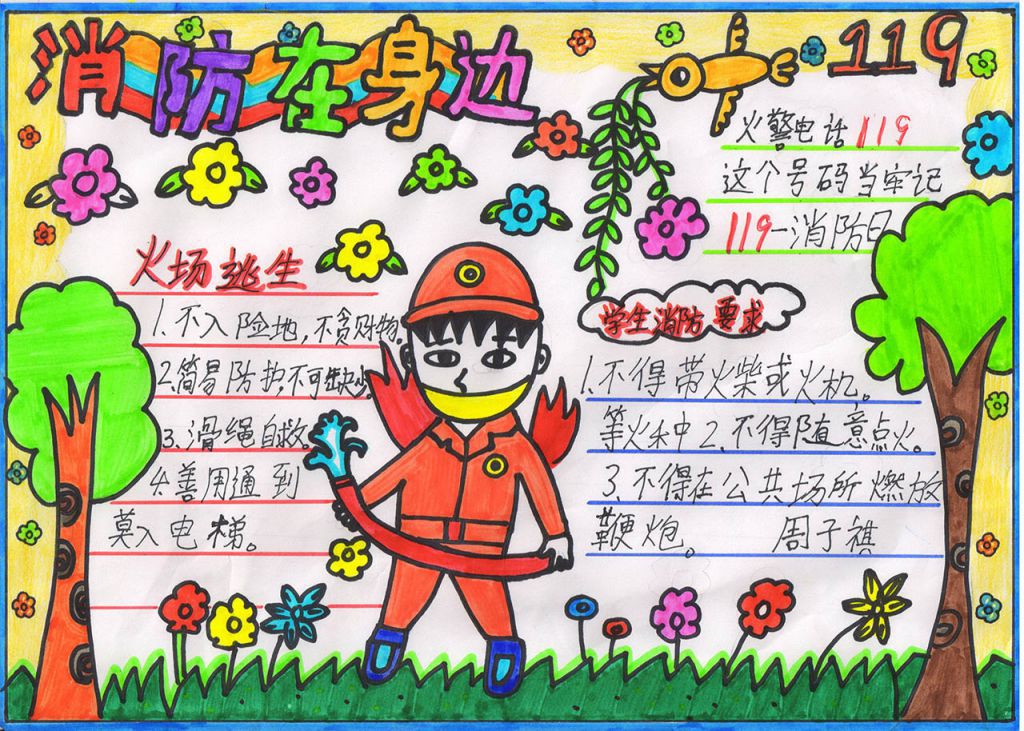 消防在身边
119
火警电话119
这个号码当牢记
119一消防日
火场逃生
1.不入险地,不贪财物。
2.简易防护不可缺少
3.滑绳自救
4.善用通到
莫入电梯。
学生消防要求
1.不得带火柴或火机。
等火种中2.不得随意点火。
3、不得在公共场所燃放
鞭炮。 周子祺